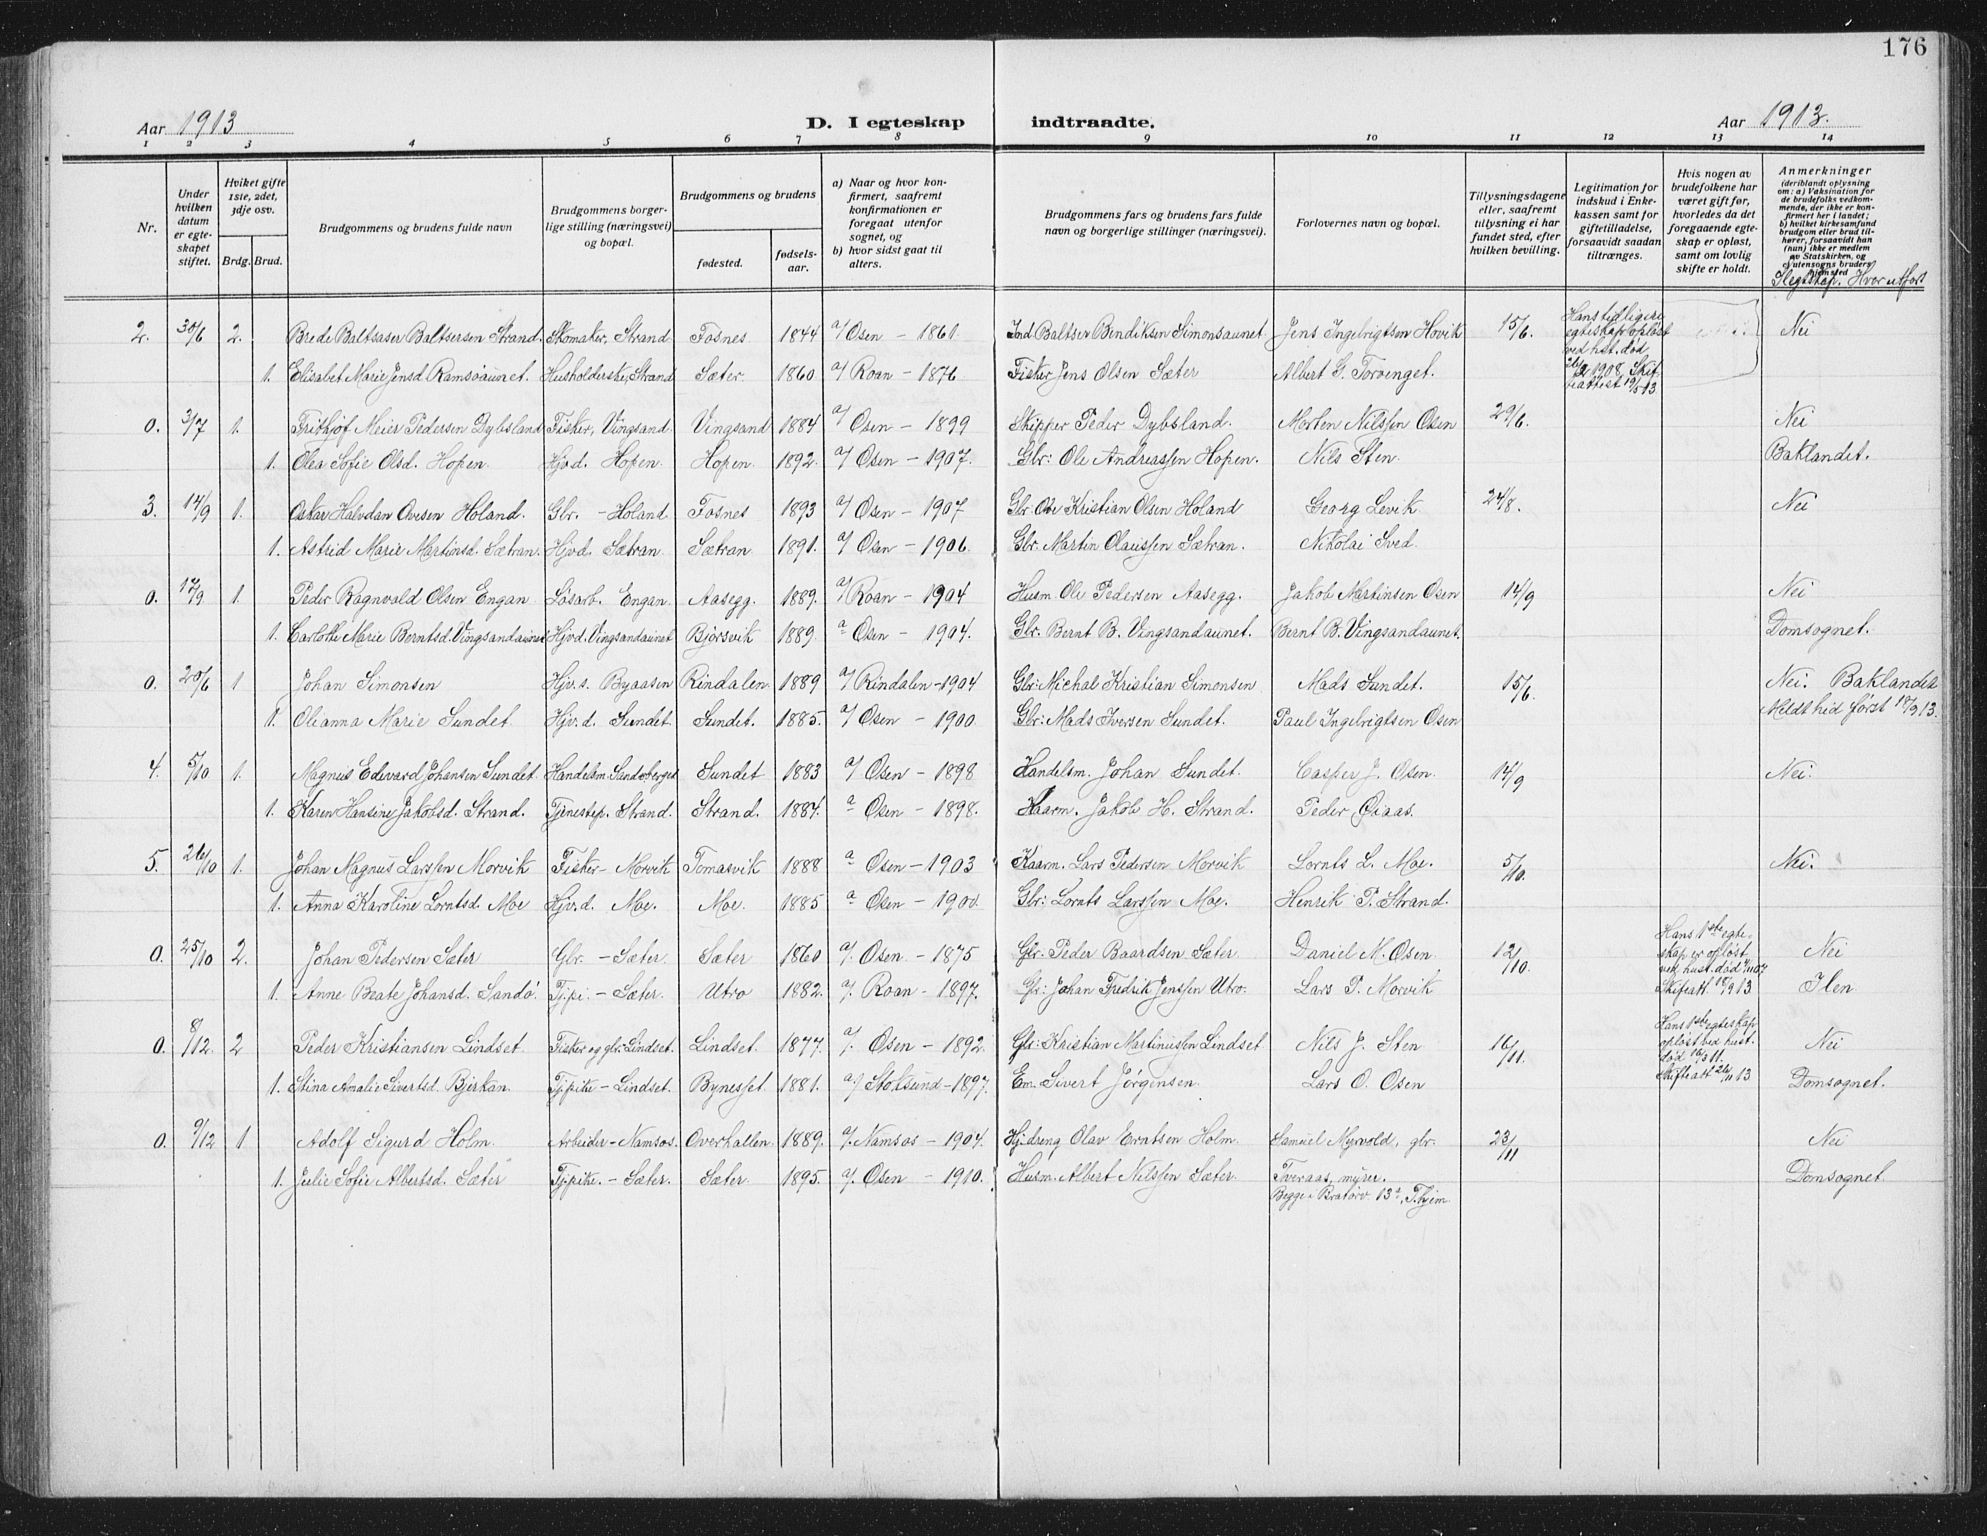 176
Aar 1913 D. I egteskap indtraadte. Aar 1913.
1 2 3 4 5 6 7 8 9 10 11 12 13 14
Nr.
Under hvilken datum er egteskapet stiftet.
Hviket gifte 1ste, 2det, 3dje osv.
Brdg. Brud.
Brudgommens og brudens fulde navn
Brudgommens borgerlige stilling (næringsvei) og bopæl.
Brudgommens og brudens
fødested. fødselsaar.
a) Naar og hvor konfirmert, saafremt konfirmationen er foregaat utenfor sognet, og
b) hvor sidst gaat til alters.
Brudgommens fars og brudens fars fulde navn og borgerlige stillinger (næringsvei).
Forlovernes navn og bopæl.
Tillysningsdagene eller, saafremt tillysning ei har fundet sted, efter hvilken bevilling.
Legitimation for indskud i Enkekassen samt for giftetilladelse, forsaavidt saadan tiltrænges.
Hvis nogen av brudefolkene har været gift før, hvorledes da det foregaaende egteskap er opløst, samt om lovlig skifte er holdt.
Anmerkninger
(deriblandt oplysning om: a) Vaksination for de brudefolks vedkommende, der ikke er konfirmert her i landet; b) hvilket kirkesamfund brudgom eller brud tilhører, forsaavidt han (nun) ikke er medlem av Statskirken, og c) utensogns bruders hjemsted
Slegtskap. Hvor utført
2. 30/6 2. Brede Baltsaser Baltsersen Strand. Skomaker, Strand Fosnes 1844 a/ Osen - 1861. Ind Baltser Bendiksen Simonsaunet Jens Ingebrigtsen Hovik 15/6. Hans tidligere egteskap opløst ved hst. død 26/2 1908. Skifteattest 19/5 13 Nei
1. Elisabet Marie Jensd. Ramsøaunet. Husholderske, Strand Sæter 1860 a/ Roan - 1876 Fisker Jens Olsen Sæter Albert G. Torvenget.
0. 3/7 1. Frithjof Meier Pedersen Dybsland Fisker, Vingsand Vingsand 1884 a/ Osen - 1899 Skipper Peder Dybsland. Morten Nilssen Osen 29/6. Nei
1. Olea Sofie Olsd. Hopen. Hjvd. Hopen. Hopen. 1892. a/ Osen - 1907. Gbr: Ole Andreassen Hopen. Nils Sten. Baklandet.
3. 14/9 1. Oskar Halvdan Ovesen Holand. Gbr. - Holand Fosnes 1893 a/ Osen - 1907 Gbr. Ove Kristian Olsen Holand Georg Levik 24/8. Nei
1. Astrid Marie Martinsd. Sætran. Hjvd. Sætran. Sætran 1891. a/ Osen - 1906. Gbr. Martin Olaussen Sætran. Nikolai Sved.
0. 17/9 1. Peder Ragnvald Olsen Engan Løsarb. Engan. Aasegg. 1889. a/ Roan - 1904 Husm. Ole Pedersen Aasegg. Jakob Martinsen Osen 14/9 Nei
1. Carlotte Marie Berntsd. Vingsandaunet Hjvd. Vingsandaunet Bjørsvik 1889. a Osen - 1904. Gbr. Bernt B. Vingsandaunet. Bernt B. Vingsandaunet. Domsognet.
0. 20/6 1 Johan Simonsen Hjv.s. Byaasen Rindalen. 1889 a/ Rindalen - 1904 Gbr: Michal Kristian Simonsen Mads Sundet. 15/6. Nei. Baklandet
1. Olianna Marie Sundet Hjv.d. Sundet Sundet. 1885. a/ Osen - 1900. Gbr: Mads Iversen Sundet. Paul Ingebrigtsen Osen Meldt hid først 17/9 13.
4. 5/10 1. Magnus Edevard Johansen Sundet. Handelsm. Sandoberget Sundet 1883 a/ Osen - 1898 Handelsm. Johan Sundet. Casper J. Osen. 14/9 Nei.
1. Karen Hansine Jakobsd. Strand. Tjenestep. Strand. Strand. 1884. a Osen - 1898. Kaarm. Jakob H. Strand. Peder Oiaas.
5. 26/10 1. Johan Magnus Larssen Morvik Fisker - Morvik Tomasvik 1888 a Osen - 1903 Kaarm. Lars Pedersen Morvik Lornts L. Moe. 5/10. Nei.
1. Anna Karoline Lorntsd. Moe Hjv.d. Moe. Moe. 1885 a Osen - 1900. Gbr: Lornts Larssen Moe. Henrik P. Strand.
0. 25/10 2. Johan Pedersen Sæter Gbr. - Sæter. Sæter 1860 a/. Osen - 1875 Gbr. Peder Baardsen Sæter. Daniel M. Osen. 12/10. Hans 1ste egteskap er opløst ved hust. død 4/11 07 Skifteatt. 10/9 13 Nei
1. Anne Beate Johansd. Sandø. Tj.pi. - Sæter. Utro 1882. a/. Roan - 1897. Gbr: Johan Fredrik Jenssen Utro. Lars P. Morvik Ilen
0. 8/12. 2 Peder Kristiansen Lindset Fisker og gbr. Lindset. Lindset. 1877. a/. Osen - 1892. Gbr: Kristian Martinussen Lindset Nils J. Sten 16/11. Hans 1ste egteskap opløst ved hust. død 16/3 11. Skifteatt 26/11 13 Nei
1. Stina Amalie Sivertsd. Bjerkan. Tjpike - Lindset. Bynesset. 1881. a/ Stoksund - 1897. Em. Sivert Jørgensen. Lars O. Osen Domsognet.
0. 9/12 1 Adolf Sigurd Holm. Arbeider - Namsos. Overhallen. 1889. a/. Namsos - 1904. Hj.dreng Olav Erntsen Holm. Samuel Myrvold, gbr. 23/11 Nei
1. Julie Sofie Albertsd. Sæter Tjpike. - Sæter. Sæter. 1895. a/. Osen - 1910. Husm. Albert Nilssen Sæter. Tveraas, myrer. Domsognet.
Begge i Bratørv. 13a, T.hjem